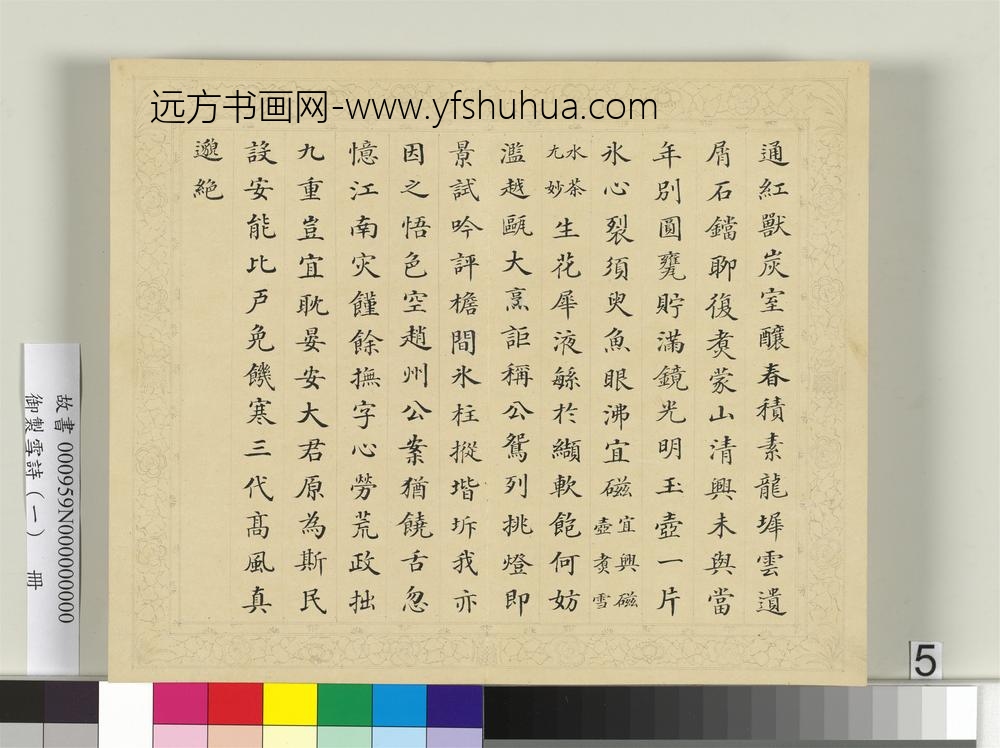 远方书画网-www.yfshuhua.com
通紅獸炭室釀春積素龍墀雲遺
屑石鐺聊復煑蒙山清興未與當
年別圓甕貯滿鏡光明玉壺一片
氷心裂須臾魚眼沸宜磁宜興磁壺煑雪
水茶尤妙生花犀液緜於纈軟飽何妨
濫越甌大烹詎稱公鴛列挑燈即
景試吟評檐間氷柱摐堦坼我亦
因之悟色空趙州公案猶饒舌忽
憶江南灾饉餘撫字心勞荒政拙
九重豈宜耽晏安大君原為斯民
設安能比戶免饑寒三代高風真
邈絕
故書 000959N000000000
御製雪詩(一) 冊
5